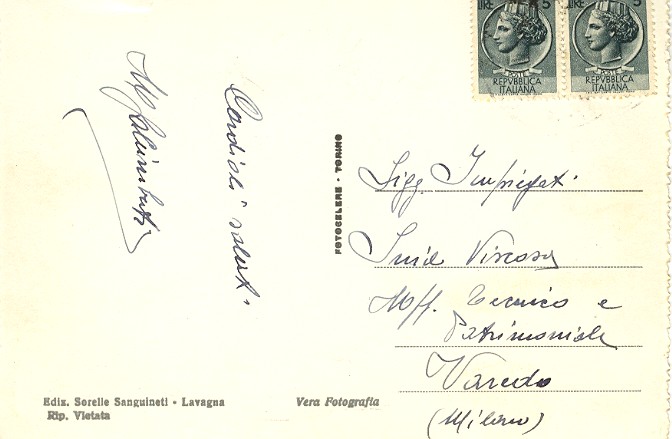 LIRE 5
POSTE
REPVBBLICA
ITALIANA
5
POSTE
REPVBBLICA
ITALIANA
Cordiali saluti
FOTOCELERE - TORINO
Sigg. Impiegati
Snia Viscosa
Uff. Tecnico e
Patrimoniale
Varedo
(Milano)
Ediz. Sorelle Sanguineti - Lavagna
Rip. Vietata
Vera Fotografia